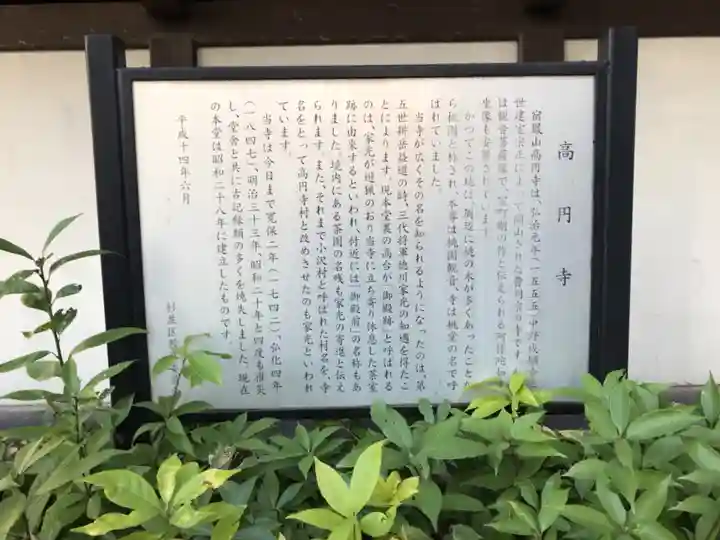 高円寺
宿鳳山高円寺は、弘治元年(一五五五)中野成願寺三
世建室宗正によって開山された曹洞宗の寺で、本尊
は観音菩薩像で、室町期の作と伝えられる阿弥陀如
来像も安置されています。
かつてこの地は周辺に桃の木が多くあったことか
ら桃園と称され、本尊は桃園観音、寺は桃堂の名で呼
ばれていました。
当寺が広くその名を知られるようになったのは、第
五世耕岳益道の時、三代将軍徳川家光の知遇を得たこ
とによります。現本堂裏の高台が「御殿跡」と呼ばれる
のは、家光が遊猟のおり当寺に立ち寄り休息した茶室
跡に由来するといわれ、付近には「御殿前」の名称もあ
りました。境内にある茶園の名残も家光の寄進と伝え
られます。また、それまで小沢村と呼ばれた村名を、寺
名をとって高円寺村と改めさせたのも家光といわれ
ています。
当寺は今日まで寛保二年(一七四二)、弘化四年
(一八四七)、明治三十三年、昭和二十年と四度も罹災
し、堂舎と共に古記録類の多くを焼失しました。現在
の本堂は昭和二十八年に建立したものです。
平成十四年六月
杉並区教